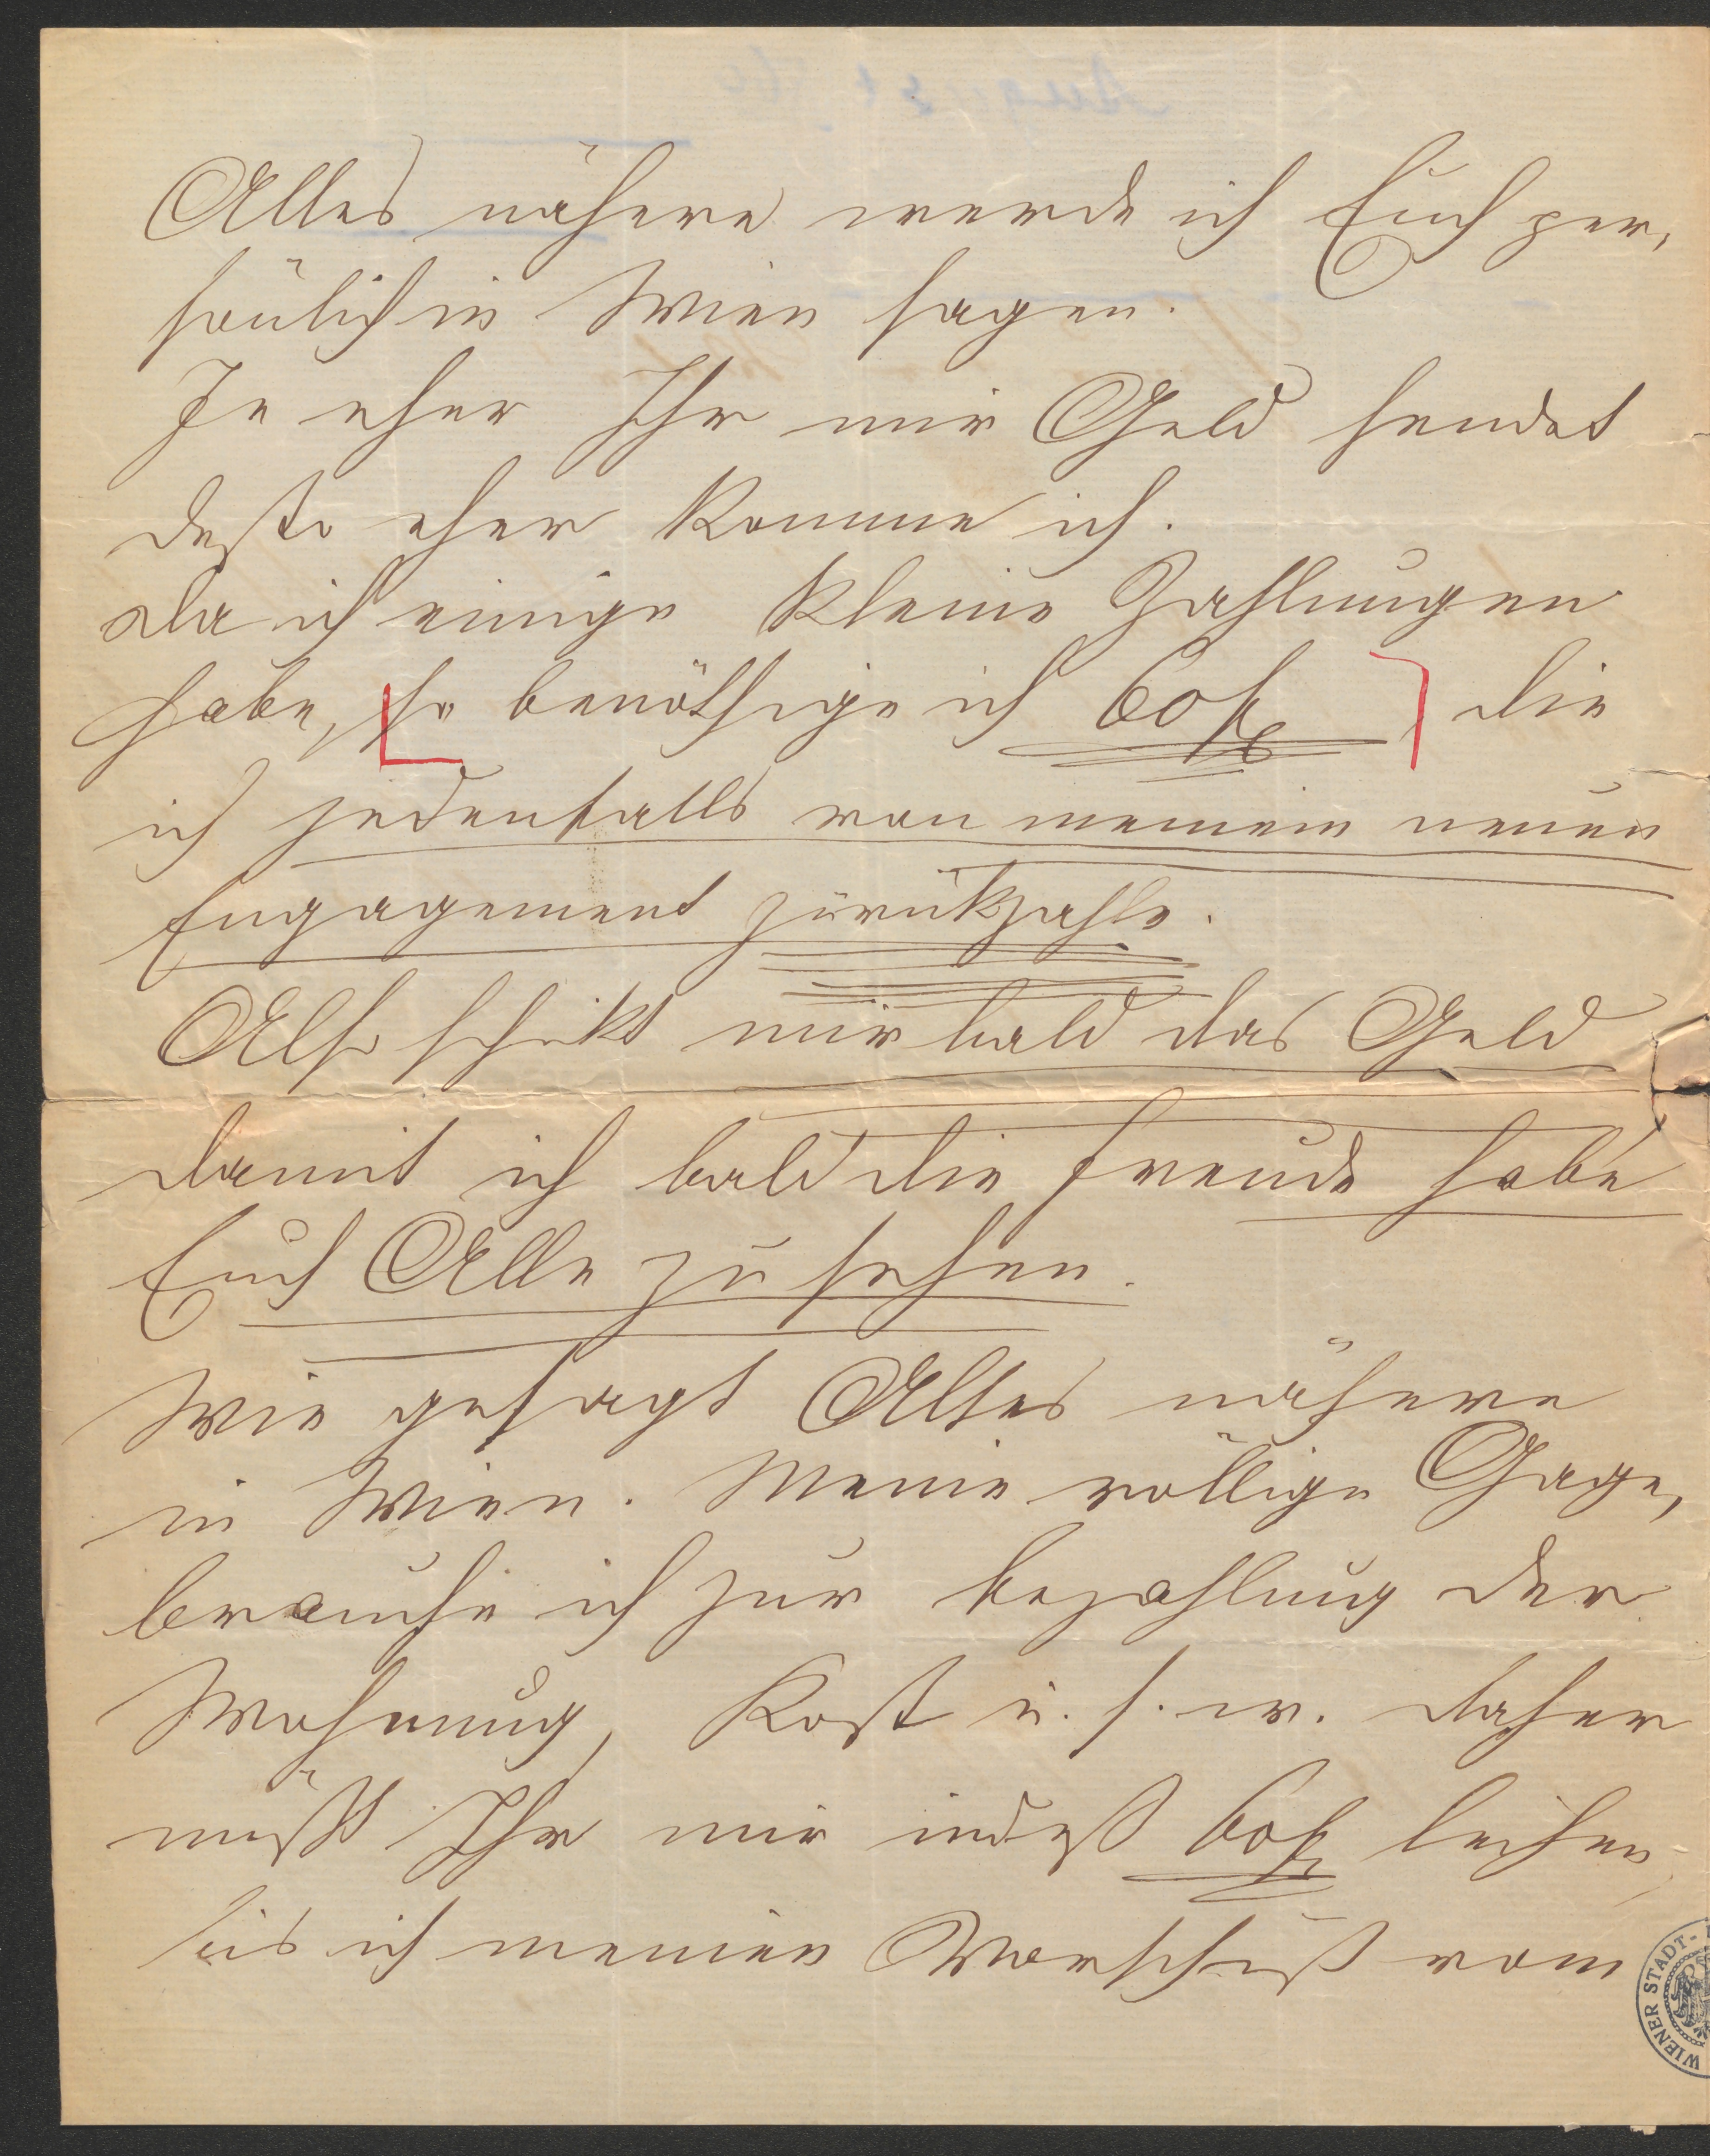 Alles nähere werde ich Euch per-
sönlich in Wien sagen.
Je eher Ihr mir Geld sendet
desto eher komme ich.
Da ich einige kleine Zahlungen
habe, so benöthige ich 60 fl die
ich jedenfalls von meinem neuen
Engagement zurükzahle.
Also schikt mir bald das Geld
damit ich bald die Freude habe
Euch Alle zu sehen.
Wie gesagt Alles nähere
in Wien. Meine völlige Gage,
brauche ich zur bezahlung der
Wohnung, Kost u. s. w. daher
müßt Ihr mir indeß 60 fl leihen,
bis ich meinen Vorschuß vom
WIENER STADT-